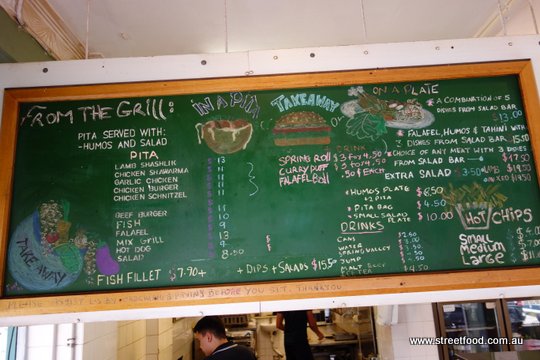 FROM THE GRILL:
PITA SERVED WITH:
-HUMOS AND SALAD
PITA
LAMB SHASHLIK 13
CHICKEN SHAWARMA 11
GARLIC CHICKEN 11
CHICKEN BURGER 11
CHICKEN SCHNITZEL 11
BEEF BURGER 11
FISH 10
FALAFEL 9
MIX GRILL 13
HOT DOG 9
SALAD 8.50
FISH FILLET $7.90
TAKE AWAY
IN A PITA
TAKEAWAY
SPRING ROLL $3 FOR 4.50
CURRY PUFF
FALAFEL BALL 50¢ EACH
+ HUMOS PLATE $6.50
+ 2 PITA
+ PITA BAG $4.50
+ SMALL SALAD PLATE $10.00
DRINK
DRINKS
CANS $2.50
WATER
SPRING VALLEY
JUMP
MALT BEER
ICE TEA $4.50
+ DIPS + SALADS $15.50
ON A PLATE
* A COMBINATION OF 5
DISHES FROM SALAD BAR
$13.00
* FALAFEL, HUMOS & TAHINI WITH
3 DISHES FROM SALAD BAR 15.50
* CHOICE OF ANY MEAT WITH 3 DISHES
FROM SALAD BAR $17.50
EXTRA SALAD $3.50
HOT CHIPS
SMALL $4.00
MEDIUM
LARGE
BEFORE YOU SIT. THANK YOU
www.streetfood.com.au